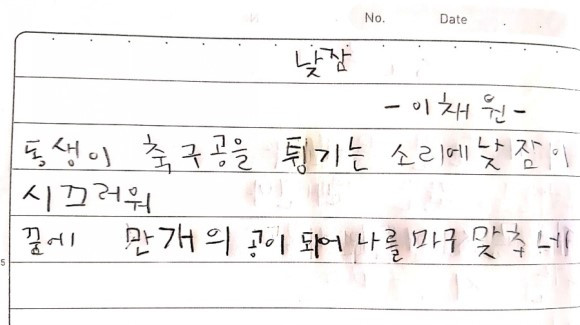 No. Date
낮잠
- 이채원 -
동생이 축구공을 튕기는 소리에 낮잠이
시끄러워
꿈에 만개의 공이 되어 나를 마구 맞추네
5